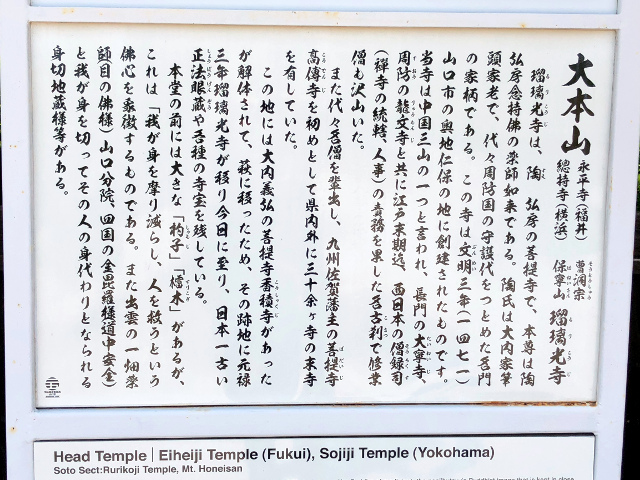 大本山
永平寺(福井)
總持寺(横浜)
曹洞宗
保寧山
瑠璃光寺
瑠璃光寺は、陶 弘房の菩提寺で、本尊は陶
弘房念持佛の薬師如来である。陶氏は大内家筆
頭家老で、代々周防国の守護代をつとめた名門
の家柄である。この寺は文明三年(一四七一)
山口市の奥地仁保の地に創建されたものです。
当寺は中国三山の一つと言われ、長門の大寧寺、
周防の龍文寺と共に江戸末期迄、西日本の僧録司
(禅寺の統轄、人事)の責務を果した名古刹で修業
僧も沢山いた。
また代々名僧を輩出し、九州佐賀藩主の菩提寺
高傳寺を初めとして県内外に三十余ヶ寺の末寺
を有していた。
この地には大内義弘の菩提寺香積寺があった
が解体されて、萩に移ったため、その跡地に元禄
三年瑠璃光寺が移り今日に至り、日本一古い
正法眼蔵や各種の寺宝を残している。
本堂の前には大きな「杓子」「擂木」があるが、
これは「我が身を摩り減らし、人を救うという
佛心を象徴するものである。また出雲の一畑薬
師(目の佛様)山口分院、四国の金毘羅様(道中安全)
と我が身を切ってその人の身代わりとなられる
身切地蔵様等がある。
Head Temple | Eiheiji Temple (Fukui), Sojiji Temple (Yokohama)
Soto Sect:Rurikoji Temple, Mt. Honeisan